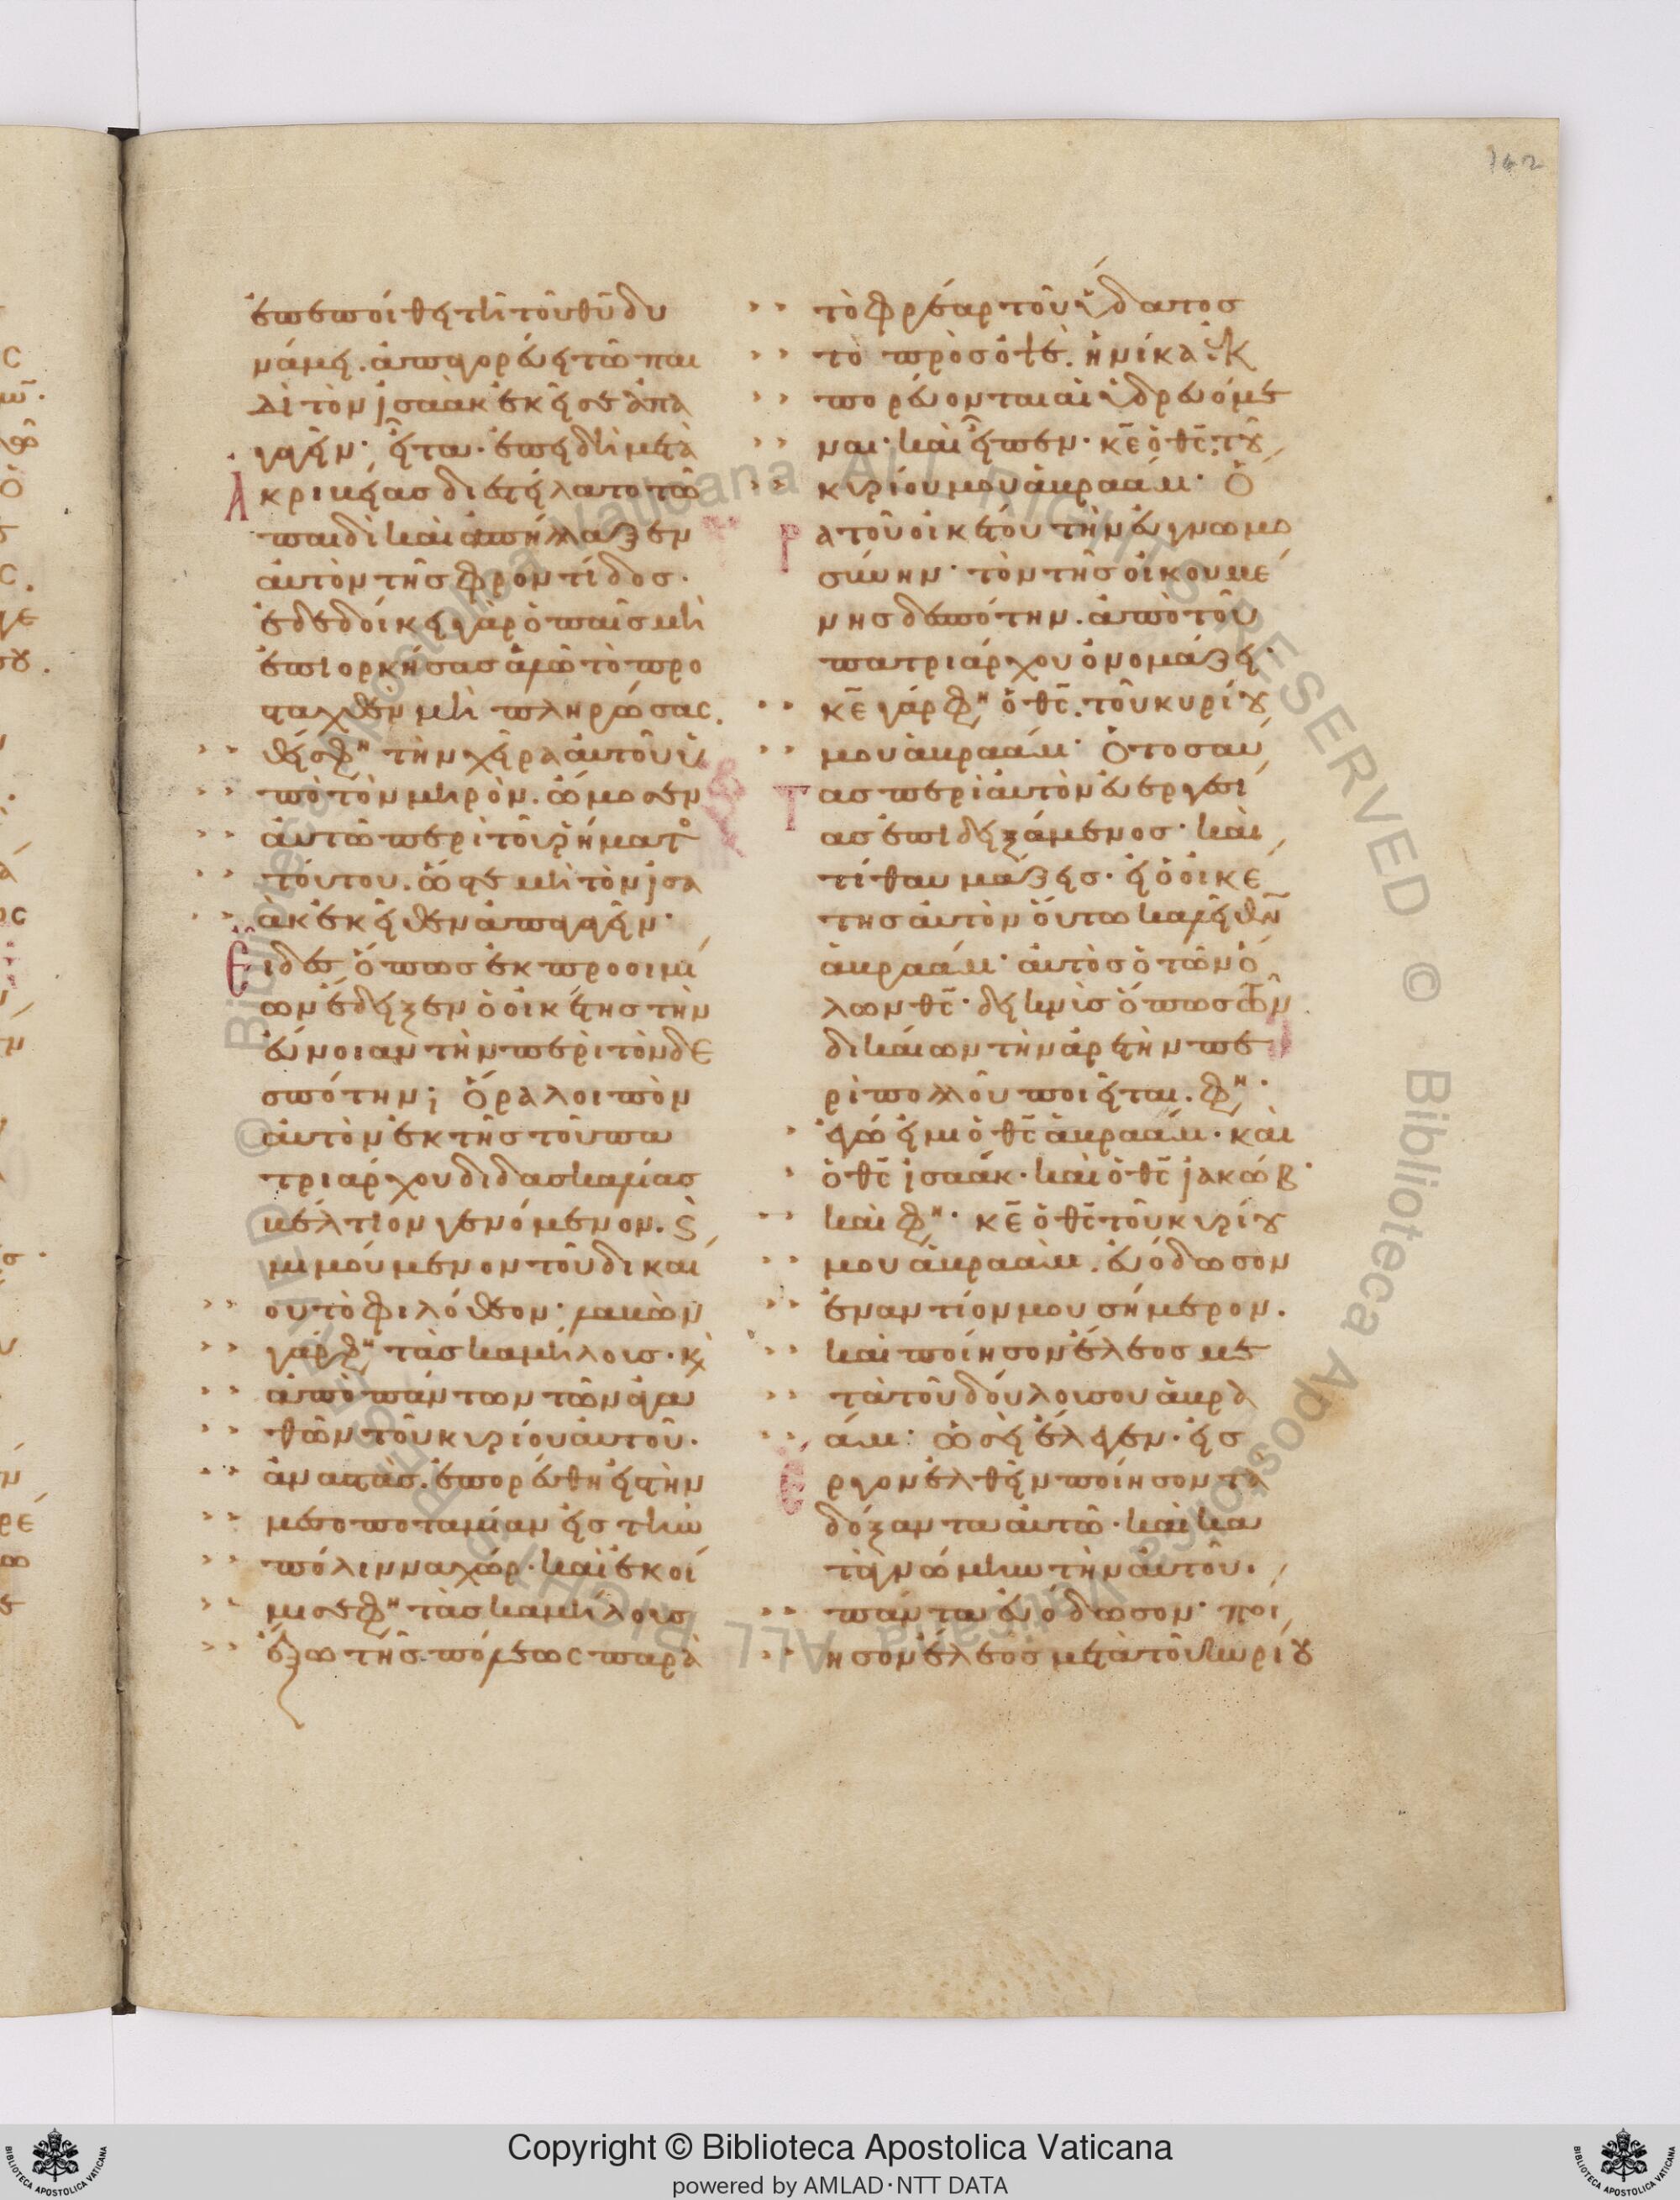 162
ἐπεποίθει τῆ τοῦ θῡ δυ
νάμει. ἀπαγορεύει τῶ παι
δὶ τὸν ἰσαὰκ ἐκεῖσε ἀπα
γαγεῖν· εἶτα ἐπειδὴ μετὰ
ἀκριβείας διεστείλατο τῶ
παιδὶ καὶ ἀπήλλαξεν
αὐτὸν τῆς φροντίδος·
ἐδεδοίκει γὰρ ὁ παῖς μὴ
ἐπιορκήσας ἁλῶ τὸ προ
σταχθὲν μὴ πληρώσας.
θεὶς φη τὴν χεῖρα αὐτοῦ ὑ
πὸ τὸν μηρὸν. ὤμοσεν
αὐτῶ περὶ τοῦ ῥήματος
τούτου. ὥστε μὴ τὸν ἰσα
ὰκ ἐκεῖθεν ἀπαγαγεῖν·
Εἶδες ὅπως ἐκ προοιμί
ων ἔδειξεν ὁ οἰκέτης τὴν
εὔνοιαν τὴν περὶ τὸν δε
σπότην; Ὅρα λοιπὸν
αὐτὸν ἐκ τῆς τοῦ πα
τριάρχου διδασκαλίας
βελτίον γενόμενον. καὶ
μιμούμενον τοῦ δικαί
ου τὸ φιλόθεον· λαβὼν
γάρ φη τὰς καμήλους· καὶ
ἀπὸ πάντων τῶν ἀγα
θῶν τοῦ κυρίου αὐτοῦ·
ἀναστὰς. ἐπορεύθη εἰς τὴν
μεσοποταμίαν εἰς τὴν
πόλιν ναχώρ· καὶ ἐκοί
μισε φη τὰς καμήλους
ἔξω τῆς πόλεως παρὰ
τὸ φρέαρ τοῦ ὕδατος
τὸ πρὸς ὀψέ. ἡνίκα ἐκ
πορεύονται αἱ ὑδρευόμε
ναι· καὶ εἶπεν· κε̄ ὁ θς̄ τοῦ
κυρίου μου ἀβραάμ· Ὅ
ρα τοῦ οἰκέτου τὴν εὐγνωμο
σύνην· τὸν τῆς οἰκουμέ
νης δεσπότην. ἀπὸ τοῦ
πατριάρχου ὀνομάζει·
κε̄ γάρ φη ὁ θς̄. τοῦ κυρίου
μου ἀβραάμ· Ὁ τοσαύ
τας περὶ αὐτὸν εὐεργεσί
ας ἐπιδειξάμενος· καὶ
τί θαυμάζεις· εἰ ὁ οἰκέ
της αὐτὸν οὕτω καλεῖ θν̄
ἀβραάμ· αὐτὸς ὁ τῶν ὅ
λων θς̄· δεικνὺς ὅπως τῶν
δικαίων τὴν ἀρετὴν πε
ρὶ πολλοῦ ποιεῖται. φη·
ἐγώ εἰμι ὁ θς̄ ἀβραάμ· καὶ
ὁ θς̄ ἰσαάκ· καὶ ὁ θς̄ ἰακώβ·
καὶ φη· κε̄ ὁ θς̄ τοῦ κυρίου
μου ἀβραάμ. εὐόδωσον
ἐναντίον μου σήμερον.
καὶ ποίησον ἔλεος με
τὰ τοῦ δούλου σου ἀβρα
άμ· ὡσεὶ ἔλεγεν· εἰς
ἔργον ἐλθεῖν ποίησον τὰ
δόξαντα αὐτῶ· καὶ κα
τὰ γνώμην τὴν αὐτοῦ·
πάντα εὐόδωσον· ποί
ησον ἔλεος μετὰ τοῦ κυρίου
Copyright © Biblioteca Apostolica Vaticana
powered by AMLAD·NTT DATA